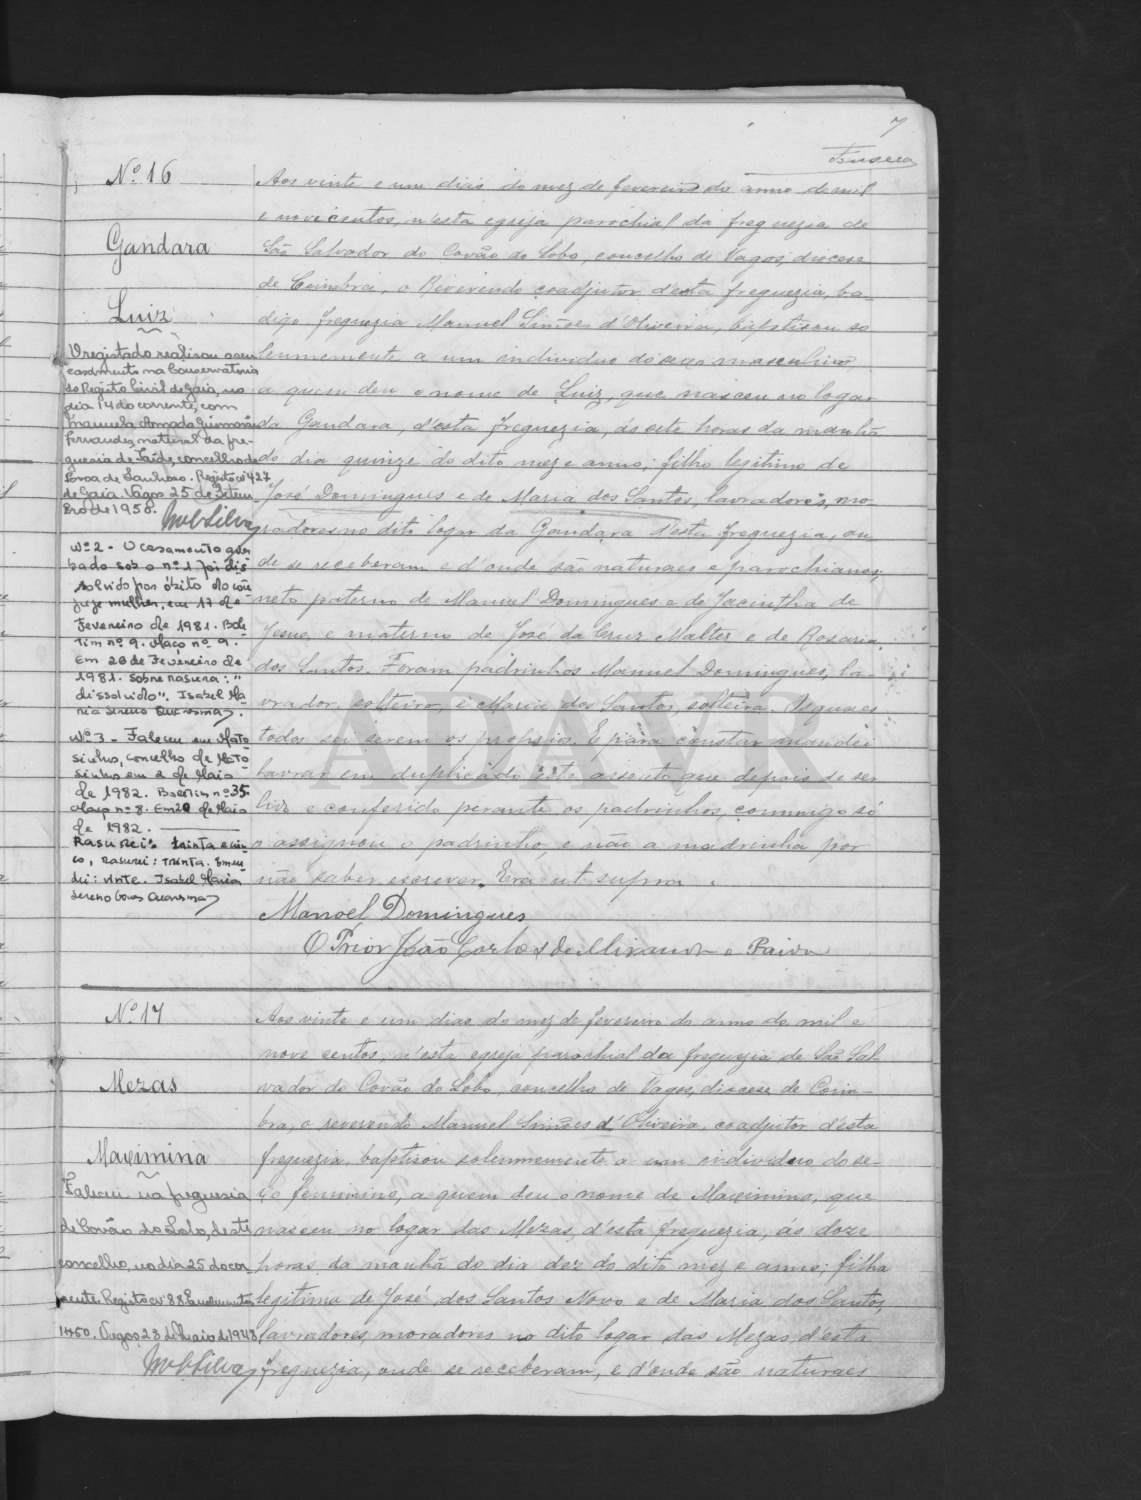 7
Fonseca
Nº 16
Gandara
Luiz
O registado realisou o seu
casamento na Conservatoria
do Registo Civil de Gaia, no
dia 14 do corrente, com
Manuela Amada Guimarães
Fernandes, natural da fre-
guesia de Taíde, concelho de
Povoa de Lanhoso. Registo nº 427
de Gaia. Vagos 25 de Setem
bro de 1958.
Nº 2 - O casamento aver
bado sob o nº 1 foi dis
solvido por óbito do côn
juge mulher, em 17 de
Fevereiro de 1981. Bole
tim nº 9. Maço nº 9.
Em 20 de Fevereiro de
1981. Sobre rasura: "
dissolvido". Isabel Ma
ria Sereno Quaresma.
Nº 3 - Faleceu em Mato
sinhos, concelho de Mato-
sinhos em 2 de Maio
de 1982. Boletim nº 35
Maço nº 8. Em 20 de Maio
de 1982.
Rasurei: trinta e cin
co, rasurei: trinta. Emen
dei: vinte. Isabel Maria
Sereno Gomes Quaresma
Aos vinte e um dias do mez de fevereiro do anno de mil
e novecentos, n'esta egreja parochial da freguezia de
São Salvador do Covão do Lobo, concelho de Vagos, diocese
de Coimbra, o Reverendo coadjutor d'esta freguezia, ba-
digo freguezia Manuel Simões d'Oliveira, baptisou so
lennemente a um individuo do sexo masculino,
a quem deu o nome de Luiz, que nasceu no logar
da Gandara, d'esta freguezia, ás sete horas da manhã
do dia quinze do dito mez e anno; filho legitimo de
José Domingues e de Maria dos Santos, lavradores, mo-
radores no dito logar da Gandara d'esta freguezia, on
de se receberam e d'onde são naturaes e parochianos;
neto paterno de Manuel Domingues e de Jacintha de
Jesus, e materno de José da Cruz Malter e de Rosaria
dos Santos. Foram padrinhos Manuel Domingues, la-
vrador, solteiro, e Maria dos Santos, solteira. Os quaes
todos sei serem os proprios. E para constar mandei
lavrar em duplicado este assento, que depois de ser
lido e conferido perante os padrinhos, commigo só
o assignou o padrinho, e não a madrinha por
não saber escrever. Era ut supra.
Manoel Domingues
O Prior João Carlos de Miranda e Paiva
Nº 17
Mezas
Maximina
Faleceu na freguesia
de Covão do Lobo, deste
concelho, no dia 25 do cor
rente. Registo nº 88
1450. Vagos 28 de Maio de 1948
Aos vinte e um dias do mez de fevereiro do anno de mil e
nove centos, n'esta egreja parochial da freguezia de São Sal-
vador do Covão do Lobo, concelho de Vagos, diocese de Coim-
bra, o reverendo Manuel Simões d'Oliveira, coadjutor d'esta
freguezia, baptisou solemnemente a um individuo do se-
xo feminino, a quem deu o nome de Maximina, que
nasceu no logar das Mezas, d'esta freguezia, ás doze
horas da manhã do dia dez do dito mez e anno; filha
legitima de José dos Santos Novo e de Maria dos Santos,
lavradores, moradores no dito logar das Mezas, d'esta
freguezia, onde se receberam, e d'onde são naturaes
ADAVR